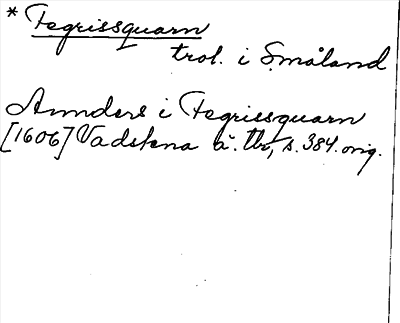 * Fegrissquarn
trol. i Småland
Annders i Fegrissquarn
[1606] Vadstena ä. tb, s. 384. orig.